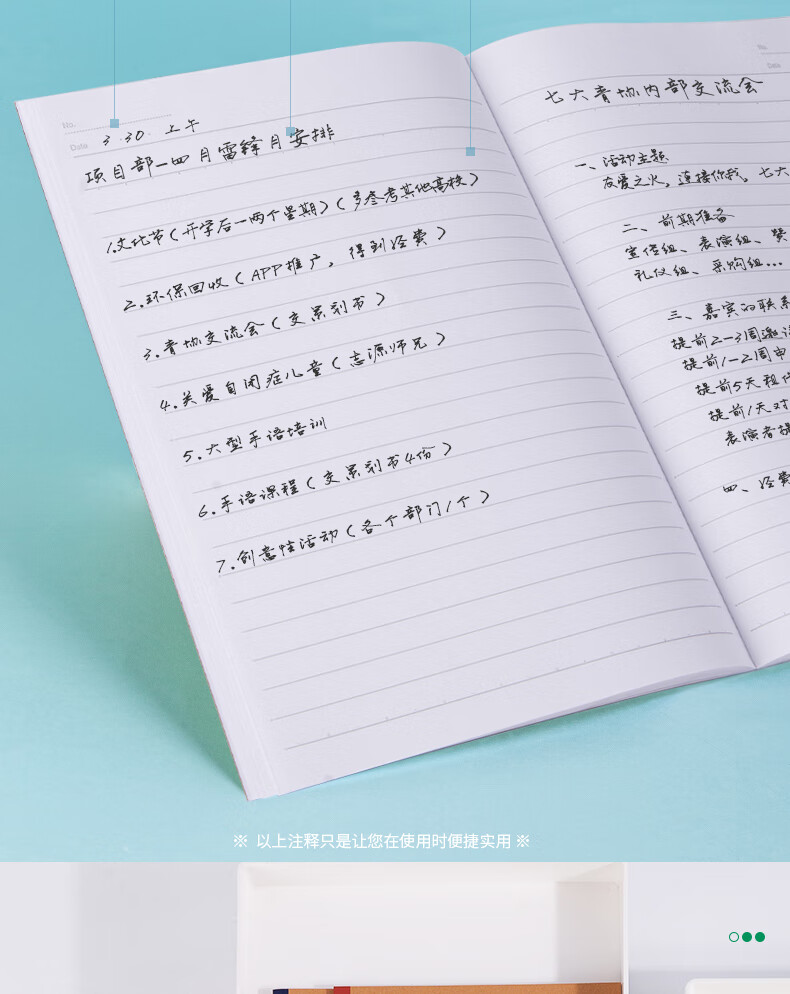 No.
Date
3.30 上午
项目部—四月雷锋月安排
1.文化节(开学后一两个星期)(多参考其他高校)
2.环保回收(APP推广,得到经费)
3.青协交流会(交策划书)
4.关爱自闭症儿童(志源师兄)
5.大型手语培训
6.手语课程(交策划书4份)
7.创意性活动(各个部门1个)
No.
Date
七大青协内部交流会
一、活动主题
友爱之火,连接你我。七大
二、前期准备
宣传组、表演组、赞
礼仪组、采购组...
三、嘉宾的联系
提前2-3周邀请
提前1-2周申
提前5天租
提前1天对
表演者提
四、经费
※ 以上注释只是让您在使用时便捷实用 ※